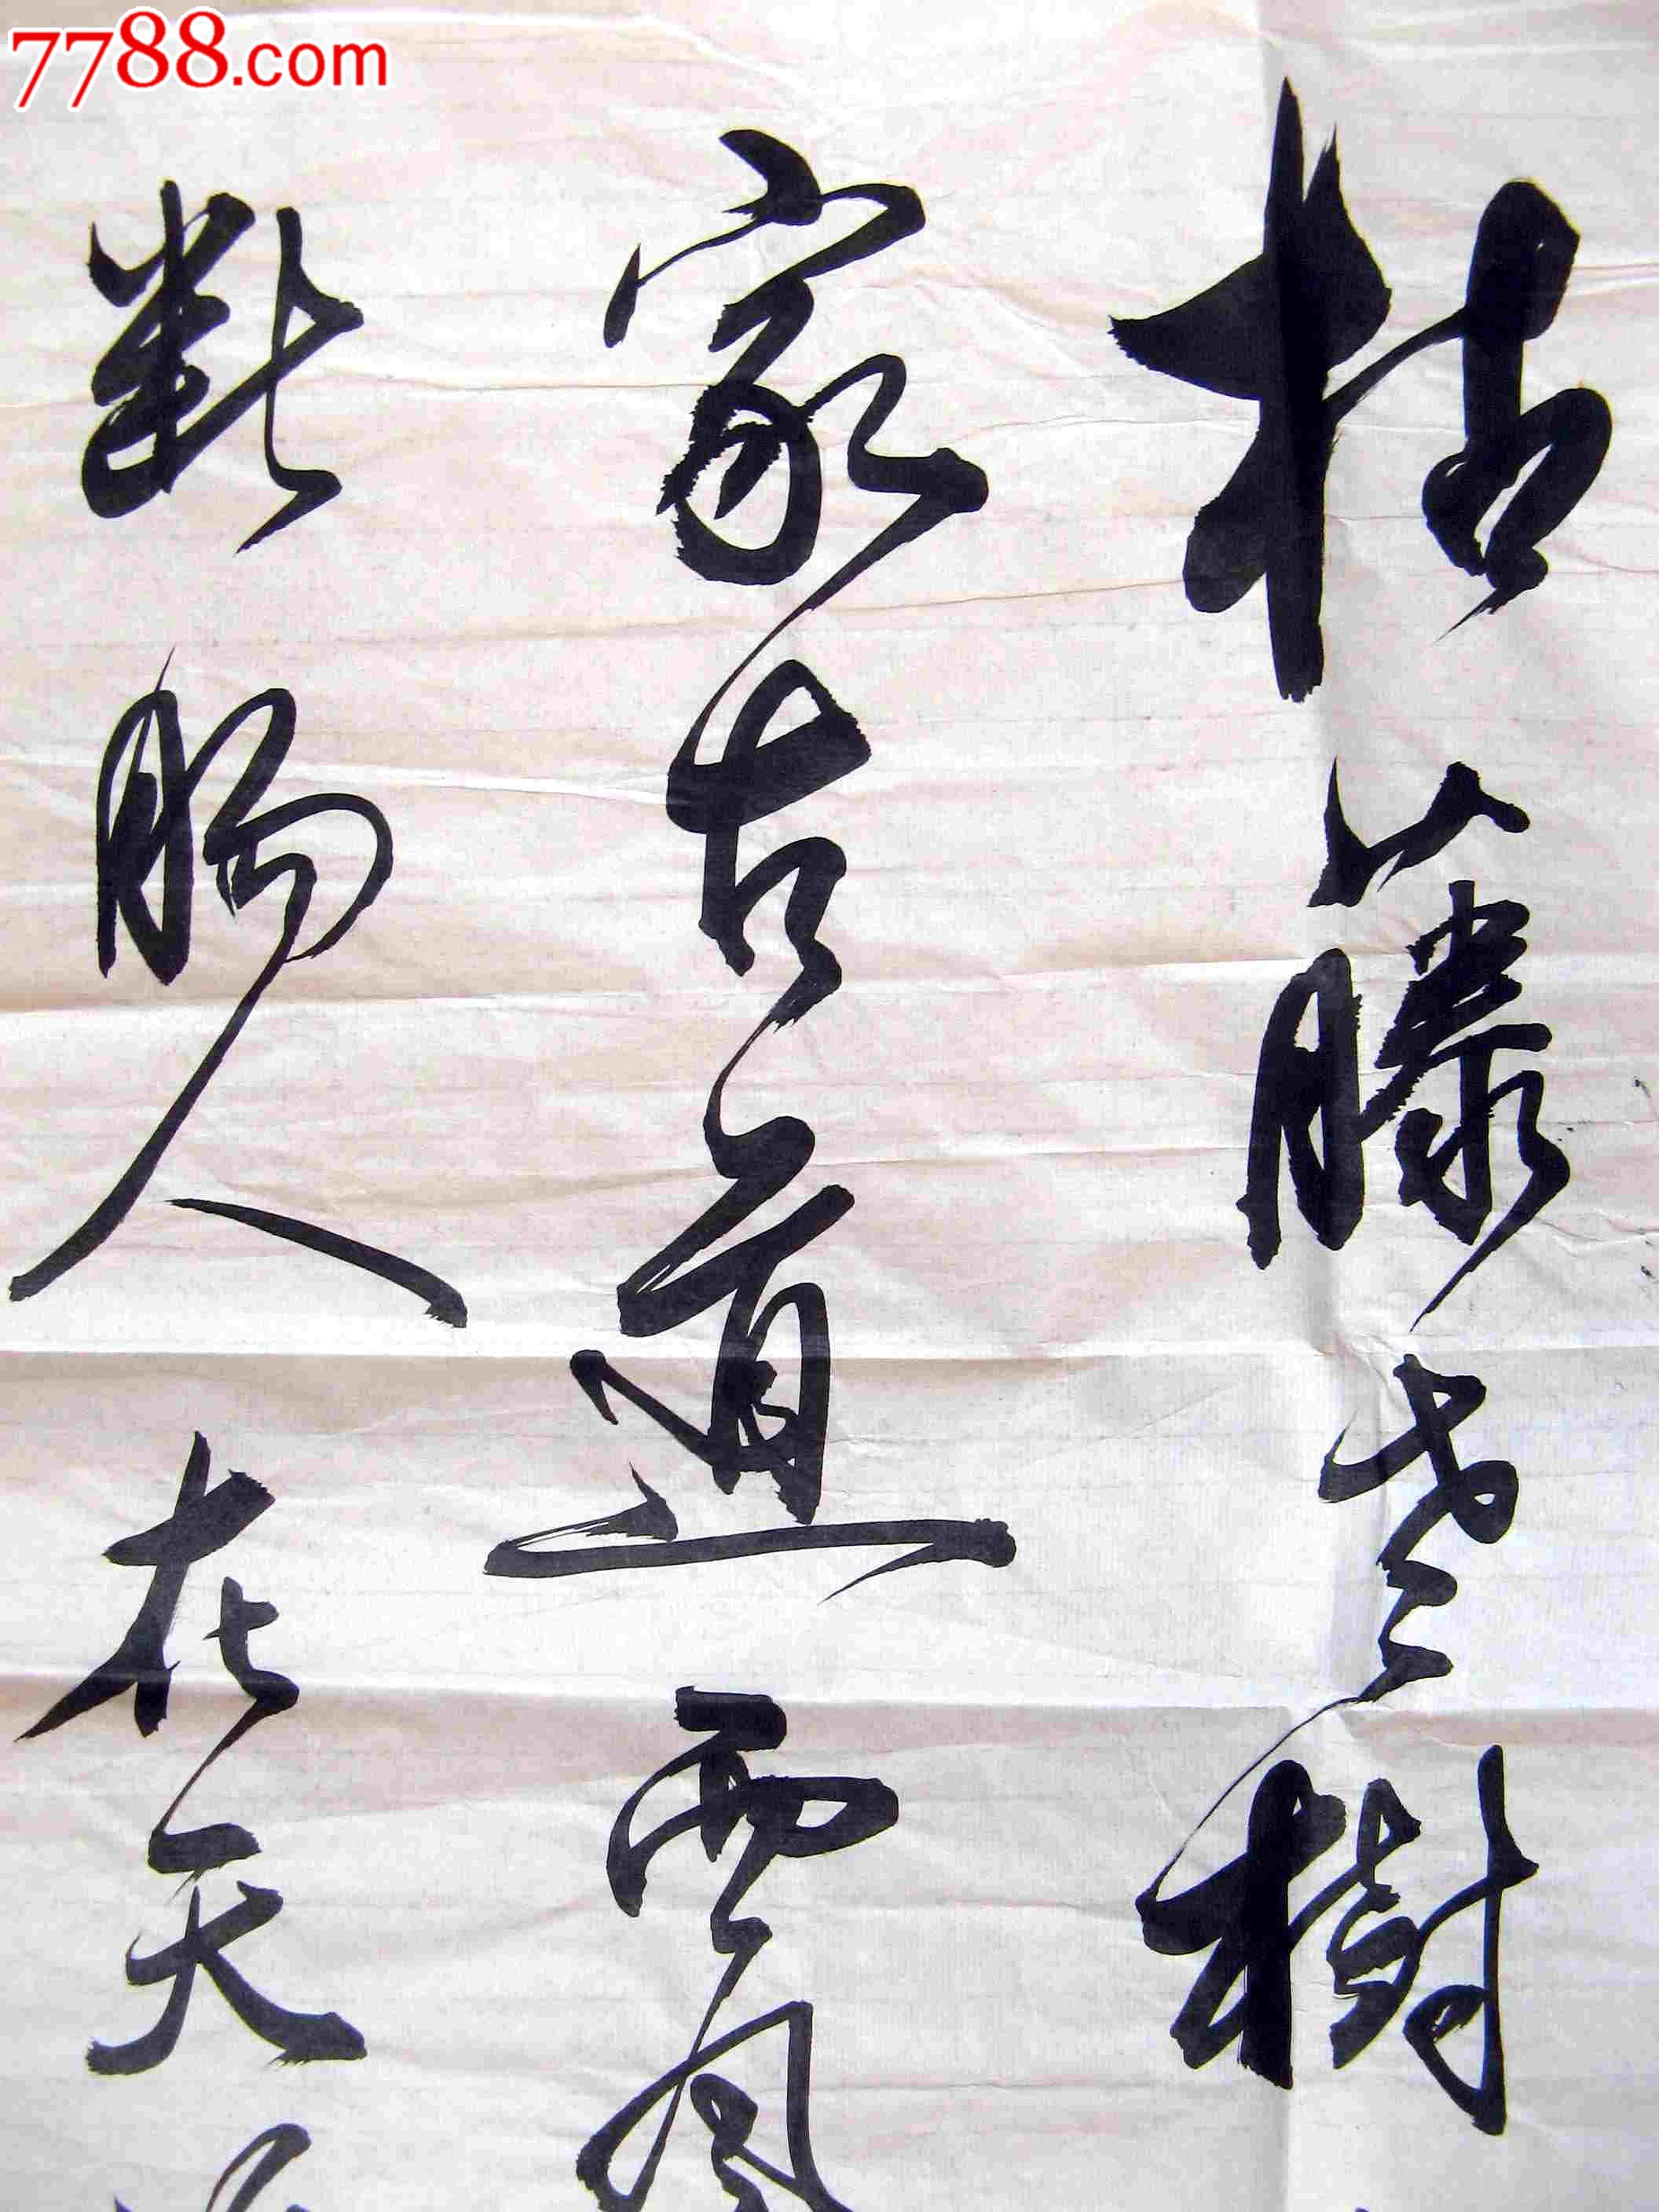 7788.com
枯藤老樹
家古道西風
斷腸人在天